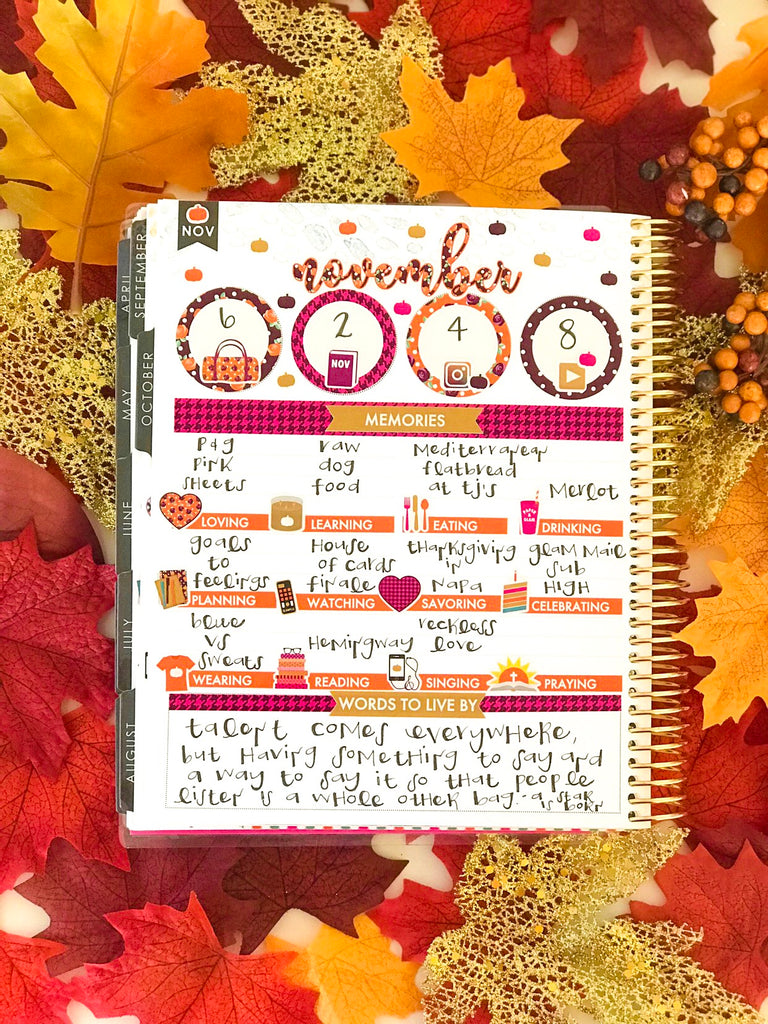 NOV
november
6 2 4 8
NOV
MEMORIES
P&G
Pink
sheets
raw
dog
food
Mediterranean
flatbread
at tj's
Merlot
LOVING LEARNING EATING DRINKING
goals
to
feelings
House
of cards
finale
thanksgiving
in
Napa
glam mail
sub
High
PLANNING WATCHING SAVORING CELEBRATING
blue
vs
sweats
Hemingway
reckless
love
WEARING READING SINGING PRAYING
WORDS TO LIVE BY
talent comes everywhere,
but having something to say and
a way to say it so that people
listen is a whole other bag. - a star
is born
APRIL
MAY
JUNE
JULY
AUGUST
SEPTEMBER
OCTOBER